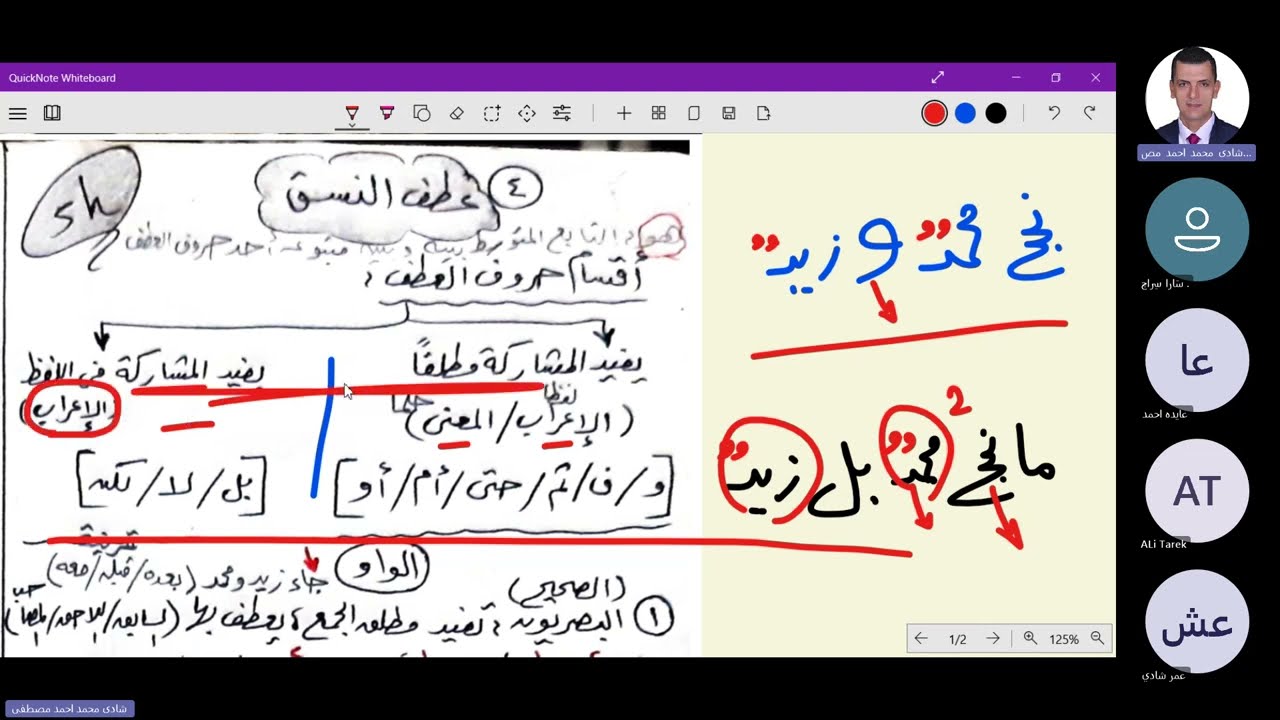 QuickNote Whiteboard
٤ عطف النسق
sh
هو: التابع المتوسط بينه وبين متبوعه أحد حروف العطف
أقسام حروف العطف:
يفيد المشاركة مطلقًا
لفظا حكما
(الإعراب/المعنى)
[و/ف/ثم/حتى/أم/أو]
يفيد المشاركة في اللفظ
(الإعراب)
[بل/لا/لكن]
الواو
جاء زيد ومحمد (بعده/قبله/معه)
(الصحيح)
١ البصريون: تفيد مطلق الجمع، يعطف بها (السابق/اللاحق/المصاحب)
نجح محمدٌ و زيدٌ
2
ما نجح محمدٌ بل زيدٌ
1/2
125%
شادى محمد احمد مص...
سارا سراج .
عا
عايده احمد
AT
ALi Tarek
عش
عمر شادي
شادى محمد احمد مصطفى